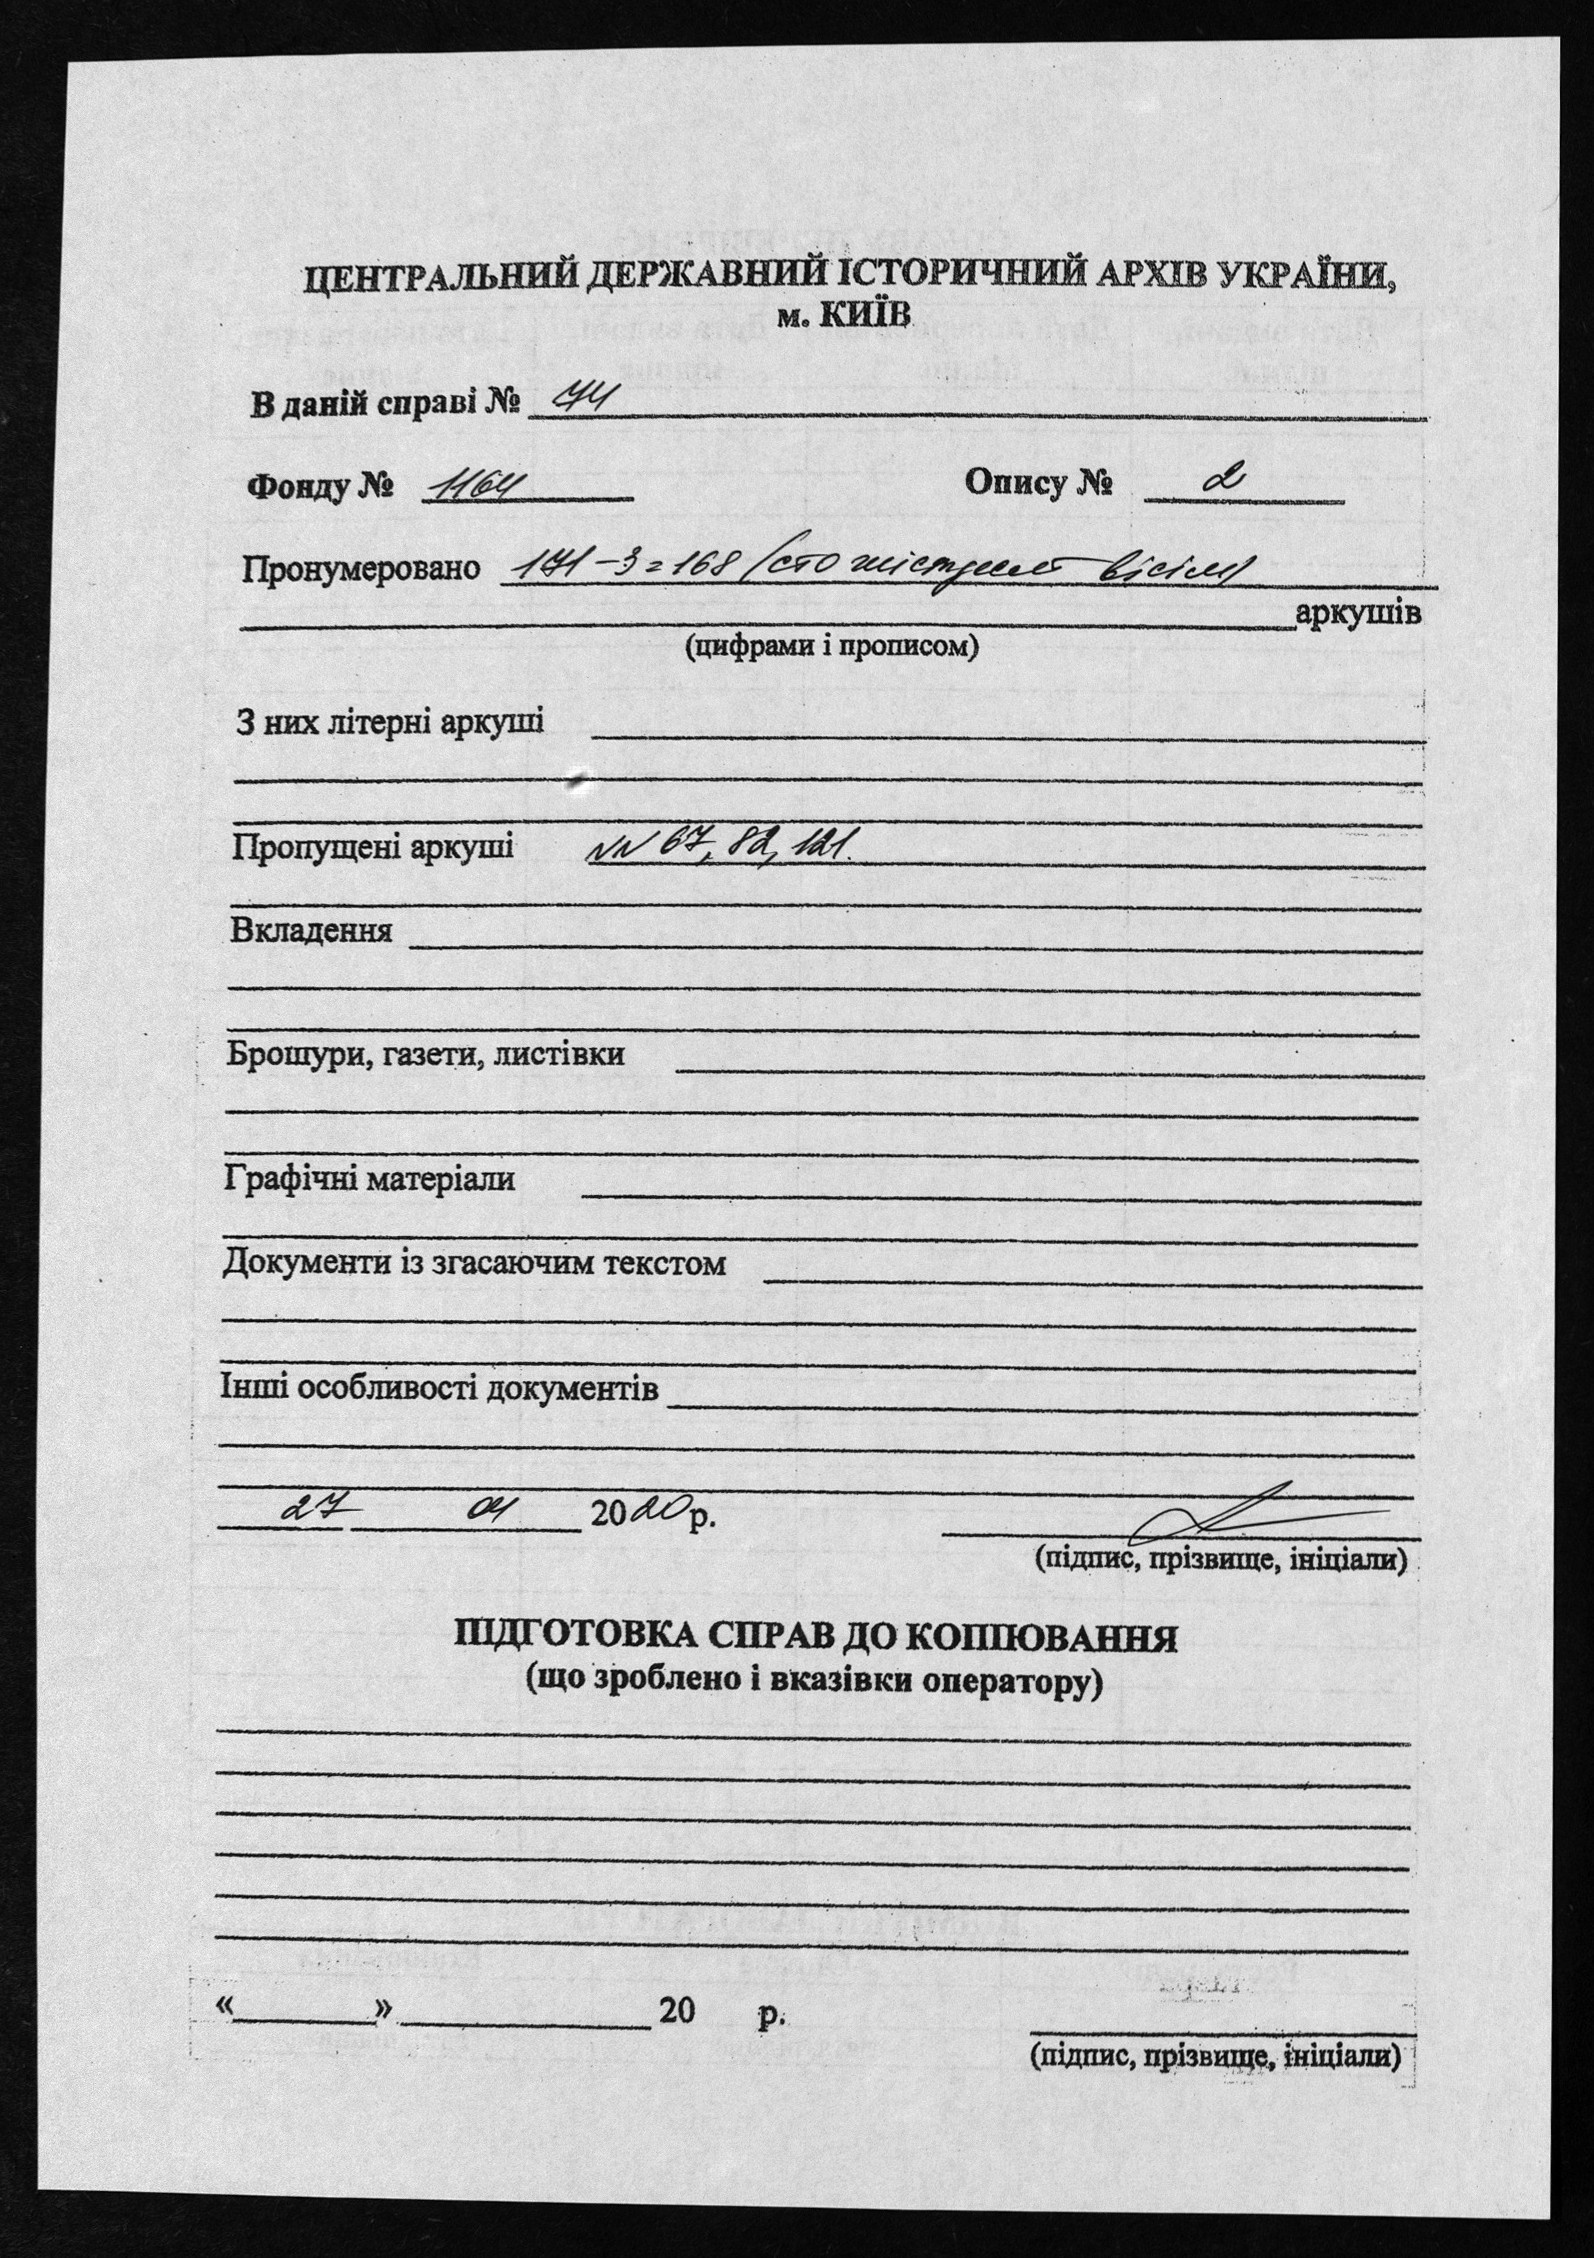 ЦЕНТРАЛЬНИЙ ДЕРЖАВНИЙ ІСТОРИЧНИЙ АРХІВ УКРАЇНИ,
м. КИЇВ
В даній справі № 74
Фонду № 1164 Опису № 2
Пронумеровано 171-3=168 (сто шістдесят вісім)
аркушів
(цифрами і прописом)
З них літерні аркуші
Пропущені аркуші NN 67, 82, 121.
Вкладення
Брошури, газети, листівки
Графічні матеріали
Документи із згасаючим текстом
Інші особливості документів
27 01 2020 р.
(підпис, прізвище, ініціали)
ПІДГОТОВКА СПРАВ ДО КОПІЮВАННЯ
(що зроблено і вказівки оператору)
«   »   20   р.
(підпис, прізвище, ініціали)